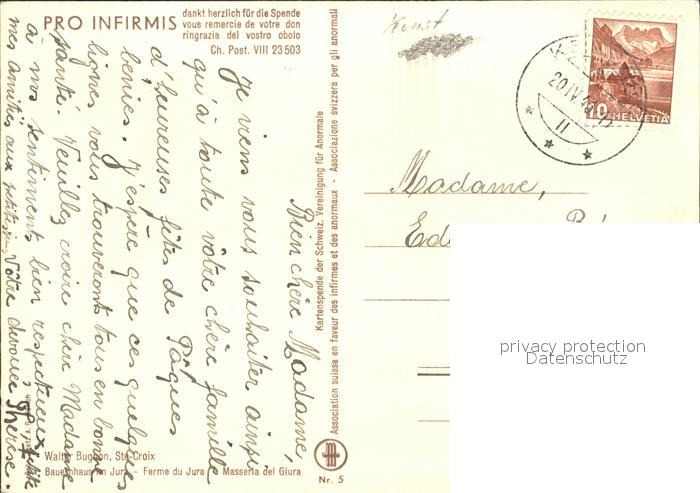 PRO INFIRMIS
dankt herzlich für die Spende
vous remercie de votre don
ringrazia del vostro obolo
Ch. Post. VIII 23503
Bien chère Madame,
Je viens vous souhaiter ainsi
qu'à toute vôtre chère famille
d'heureuses fêtes de Pâques
bénies. J'espère que ces quelques
lignes vous trouveront tous en bonne
santé. Veuillez croire chère Madame
à mes sentiments bien respectueux
mes amitiés aux Vôtre Thérèse.
Walter Bugnon, Ste-Croix
Bauernhaus im Jura - Ferme du Jura - Masseria del Giura
Kartenspende der Schweiz. Vereinigung für Anormale
Association suisse en faveur des infirmes et des anormaux - Associazione svizzera per gli anormali
Nr. 5
20.IV
11
10 HELVETIA
Madame,
privacy protection
Datenschutz